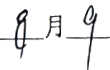 8月9